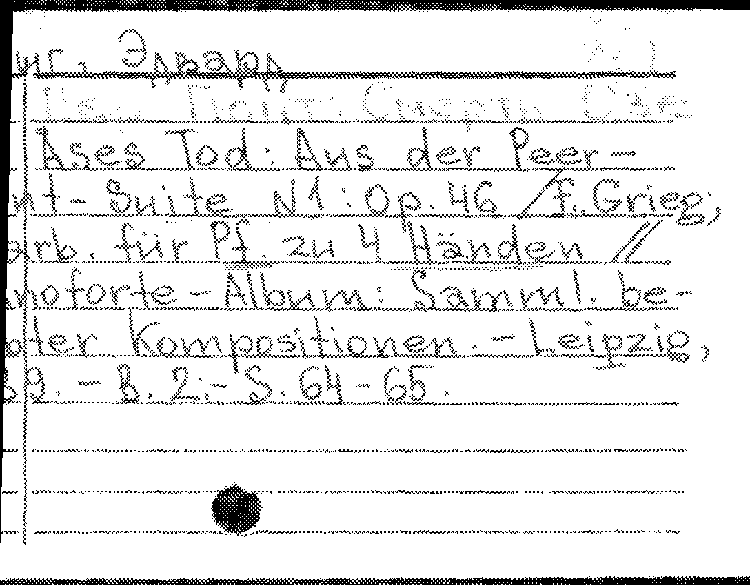 иг, Эдвард
Пер Гюнт: Смерть Озе
Ases Tod: Aus der Peer-
nt-Suite N1: Op. 46 / f. Grieg;
arb. für Pf. zu 4 Händen //
anoforte-Album: Samml. be-
bter Kompositionen. - Leipzig,
89. - B. 2. - S. 64-65.